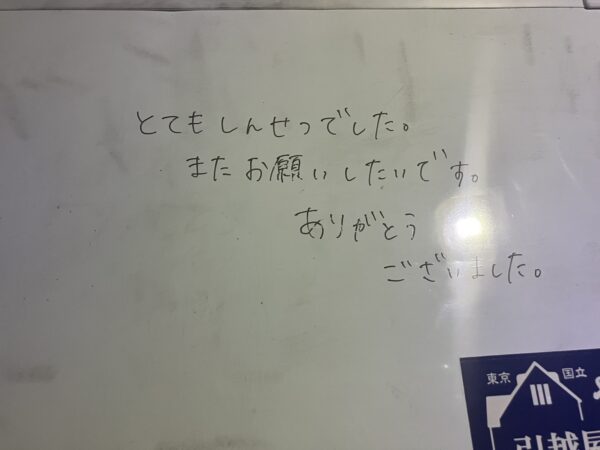 とてもしんせつでした。
またお願いしたいです。
ありがとう
ございました。
東京 国立
引越